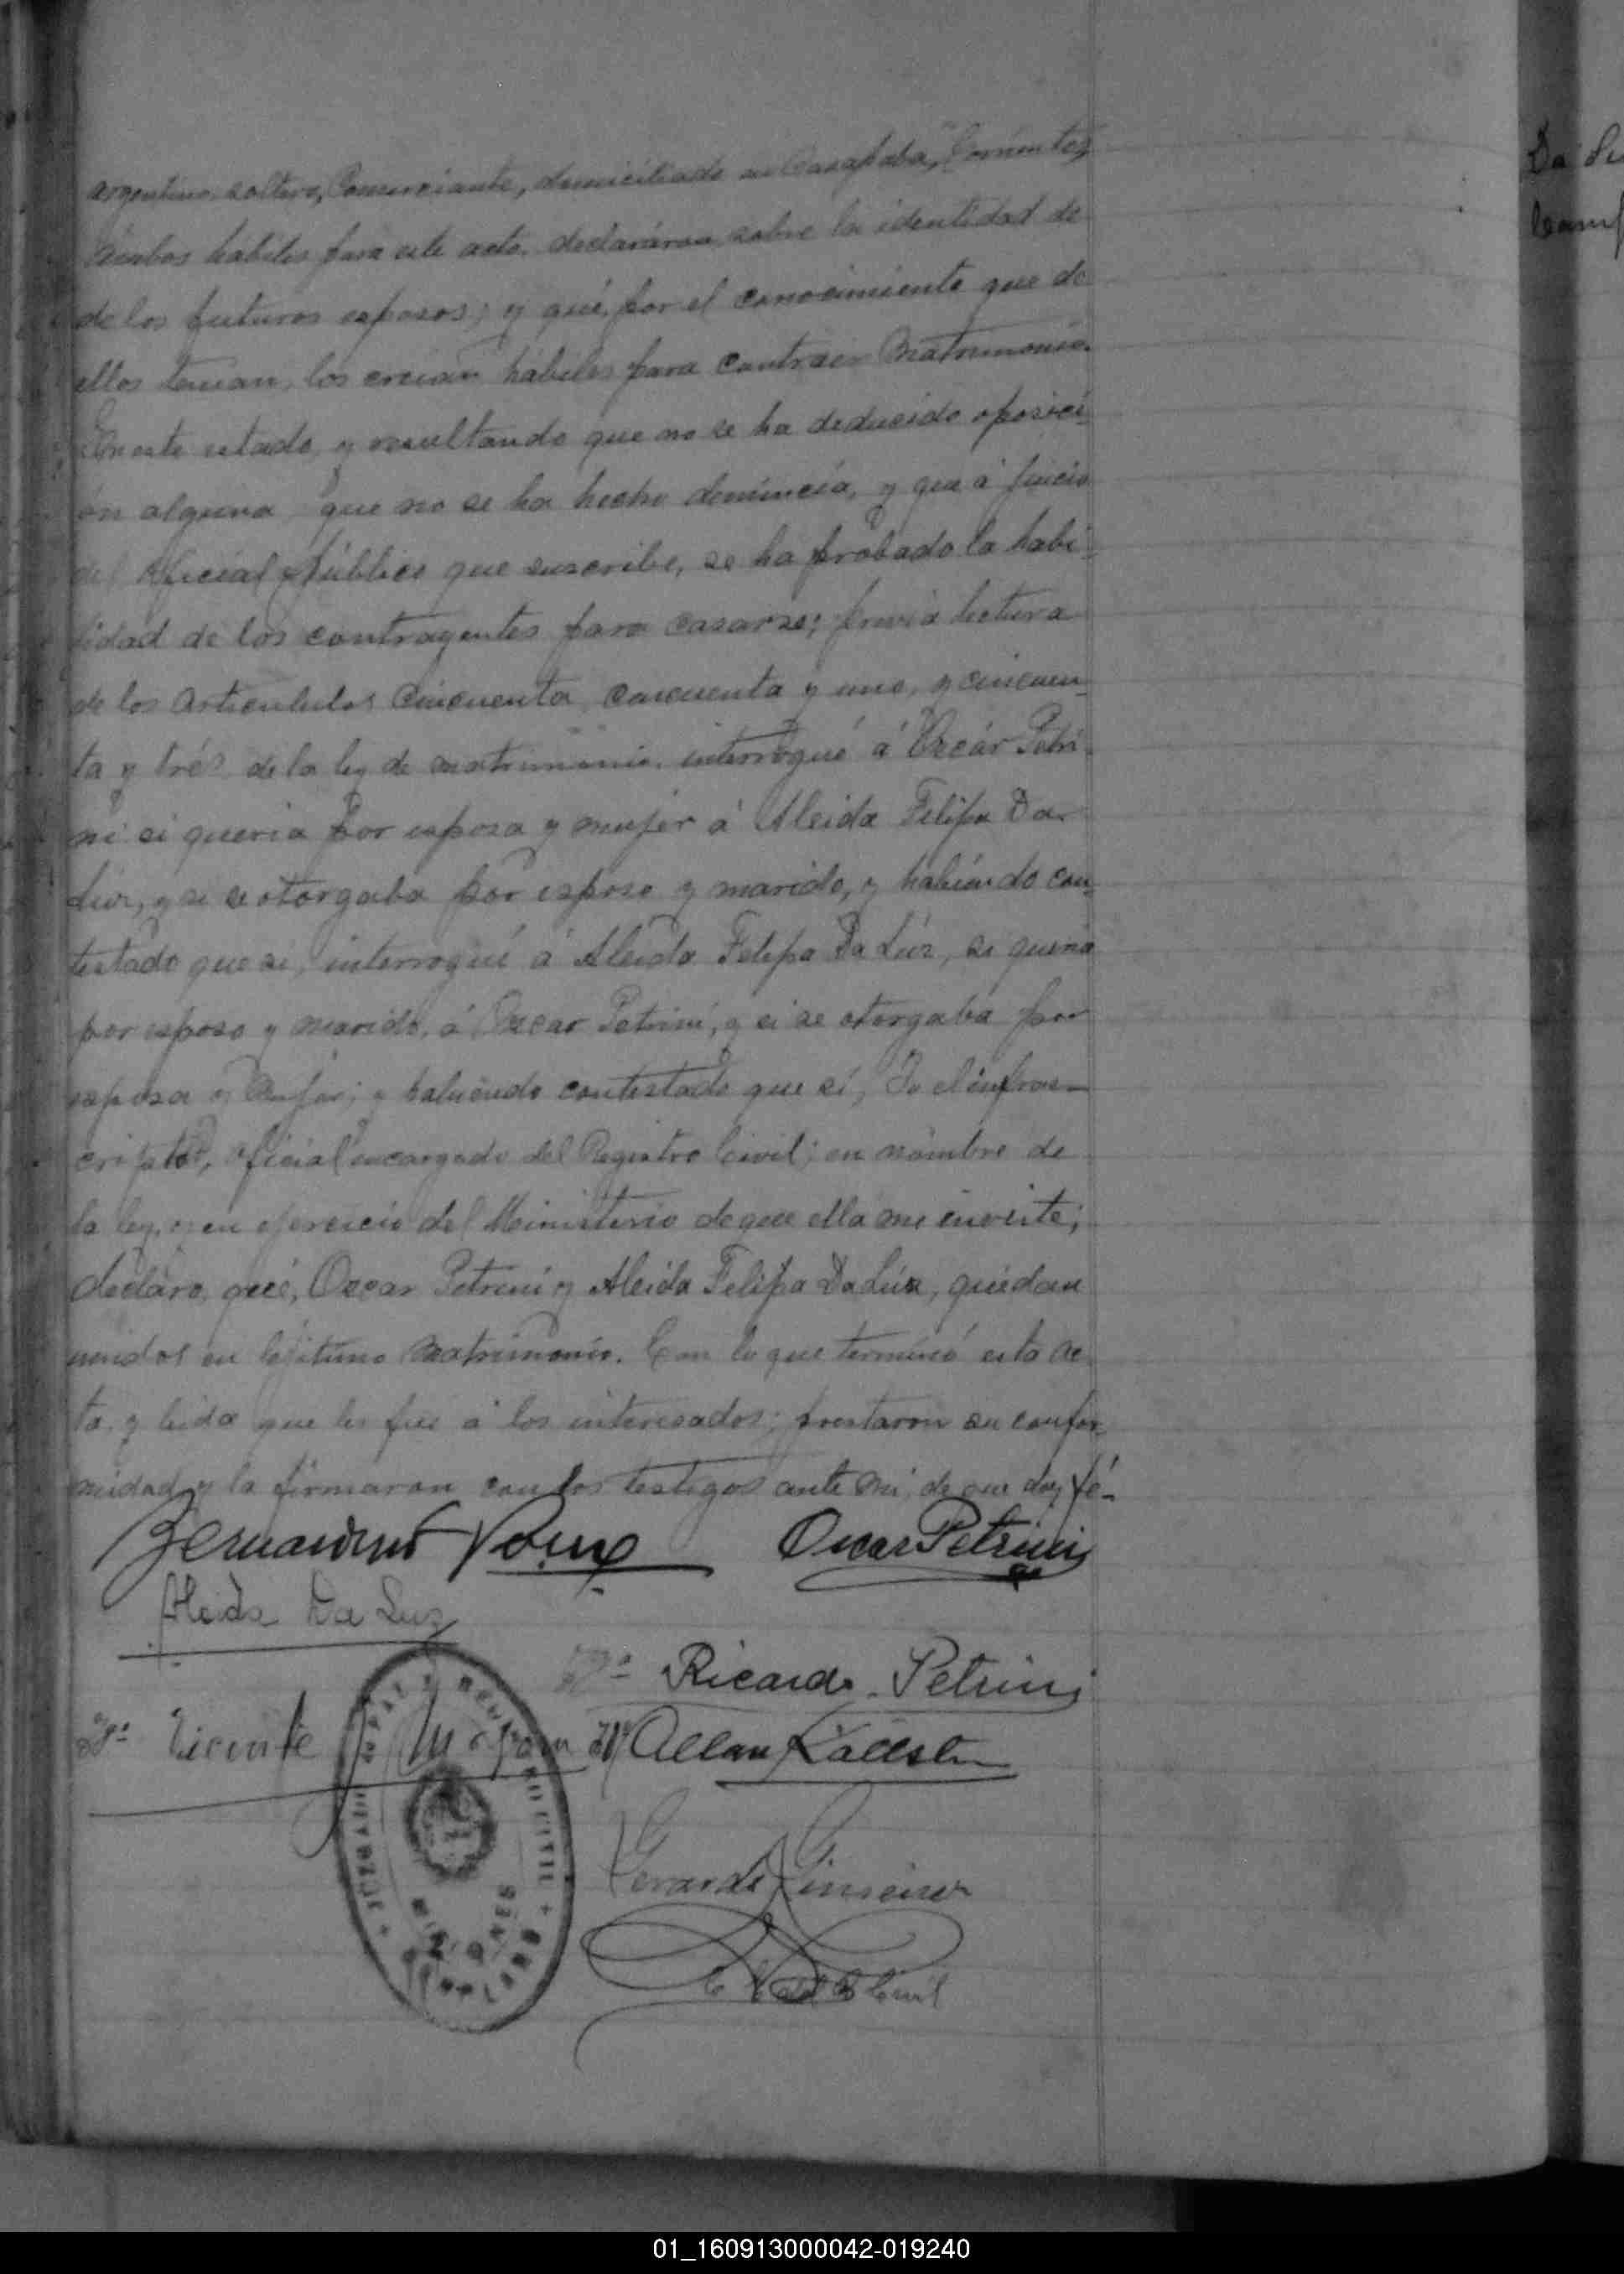 argentino, soltero, Comerciante, domiciliado en Caazapaba, "Corrientes,
Ambos habiles para este acto, declararon sobre la identidad de
de los futuros esposos; y qué, por el conocimiento que de
ellos tenian, los creian hábiles para contraer Matrimonio.
En este estado, y resultando que no se ha deducido oposici-
ón alguna, que no se ha hecho denúncia, y que á juicio
del Oficial público que suscribe, se ha probado la habi-
lidad de los contrayentes para casarse; prévia lectura
de los articululos cincuenta, cincuenta y uno, y cincuen-
ta y trés, de la ley de matrimonio, interrogué á Oscár Petri-
ni si queria por esposa y mujer á Aleida Felipa Da
Lúz, y si se otorgaba por esposo y marido, y habiendo con-
testado que si, interrogué á Aleida Felipa Da Lúz, si queria
por esposo y marido, á Oscar Petrini, y si se otorgaba por
esposa y Mujer; y habiendo contestado que sí, Yo el infras-
cripto, oficial encargado del Registro Civil; en nombre de
la ley, y en ejercicio del Ministerio de que ella me inviste;
declaro, qué, Oscar Petrini y Aleida Felipa Da Lúz, quédan
unidos en lejitimo Matrimonio. Con lo que terminó esta ac-
ta, y leida que les fué á los interesados; prestaron su confor-
midad y la firmaron con los testigos ante mi, de que doy fé-
Oscar Petrini
Aleida Da Luz
Ricardo Petrini
Vicente
Allan
Gerardo
Civil
MISIONES
Da Lu
01_160913000042-019240